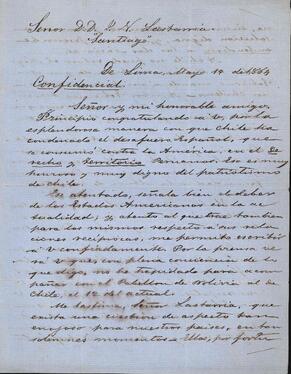 Señor D. D. J. V. Lastarria
"Santiago"
De Lima, Mayo 19 de 1864
Confidencial.
Señor y mi honorable amigo.
Principio congratulando a V., por la
esplendorosa manera con que Chile ha
condenado el desafuero Español, que
consumó contra la America, en el De
recho y Territorio Peruanos. Eso es muy
honroso y muy digno del patriotismo
de Chile.
Ese atentado, señala bien el deber
de los Estados Americanos en la ac
tualidad; y atento al que trae tambien
para los mismos respecto a sus rela
ciones reciprocas, me permito escribir
a V. confiadamente. Por la prensa ve
rá V. que, con plena conciencia de lo
que digo, no he trepidado para acom
pañar con el Pabellon de Bolivia al de
Chile, el 12 del actual.
Me lastima, señor Lastarria, que
exista una cuestion de aspecto tan
enojoso para nuestros paises, en tan
solemnes momentos. Ellos, por